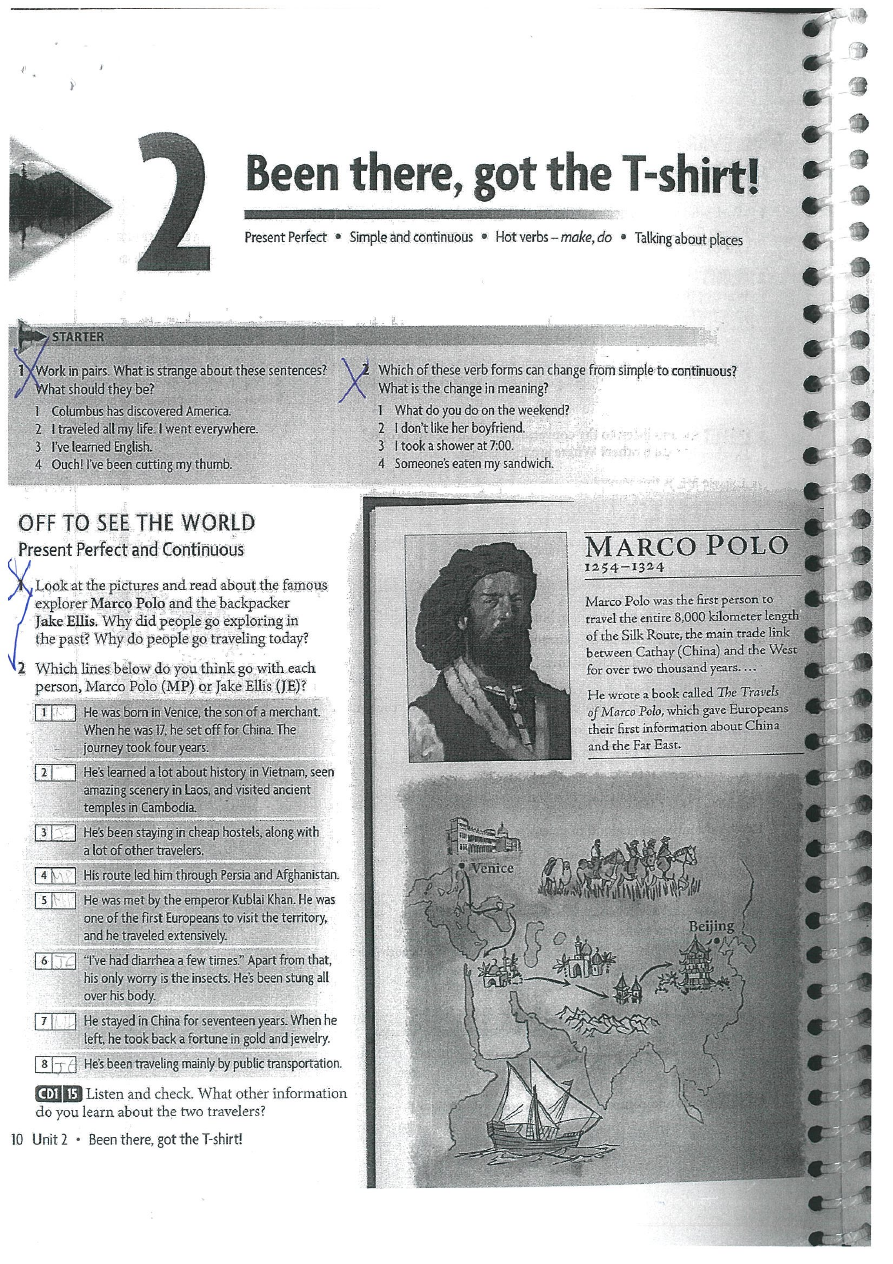 2
Been there, got the T-shirt!
Present Perfect • Simple and continuous • Hot verbs – make, do • Talking about places
STARTER
1 Work in pairs. What is strange about these sentences?
What should they be?
1 Columbus has discovered America.
2 I traveled all my life. I went everywhere.
3 I've learned English.
4 Ouch! I've been cutting my thumb.
2 Which of these verb forms can change from simple to continuous?
What is the change in meaning?
1 What do you do on the weekend?
2 I don't like her boyfriend.
3 I took a shower at 7:00.
4 Someone's eaten my sandwich.
OFF TO SEE THE WORLD
Present Perfect and Continuous
1 Look at the pictures and read about the famous
explorer Marco Polo and the backpacker
Jake Ellis. Why did people go exploring in
the past? Why do people go traveling today?
2 Which lines below do you think go with each
person, Marco Polo (MP) or Jake Ellis (JE)?
1 He was born in Venice, the son of a merchant.
When he was 17, he set off for China. The
journey took four years.
2 He's learned a lot about history in Vietnam, seen
amazing scenery in Laos, and visited ancient
temples in Cambodia.
3 He's been staying in cheap hostels, along with
a lot of other travelers.
4 His route led him through Persia and Afghanistan.
5 He was met by the emperor Kublai Khan. He was
one of the first Europeans to visit the territory,
and he traveled extensively.
6 JE "I've had diarrhea a few times." Apart from that,
his only worry is the insects. He's been stung all
over his body.
7 He stayed in China for seventeen years. When he
left, he took back a fortune in gold and jewelry.
8 JE He's been traveling mainly by public transportation.
CD1 15 Listen and check. What other information
do you learn about the two travelers?
10 Unit 2 • Been there, got the T-shirt!
MARCO POLO
1254–1324
Marco Polo was the first person to
travel the entire 8,000 kilometer length
of the Silk Route, the main trade link
between Cathay (China) and the West
for over two thousand years. …
He wrote a book called The Travels
of Marco Polo, which gave Europeans
their first information about China
and the Far East.
Venice
Beijing